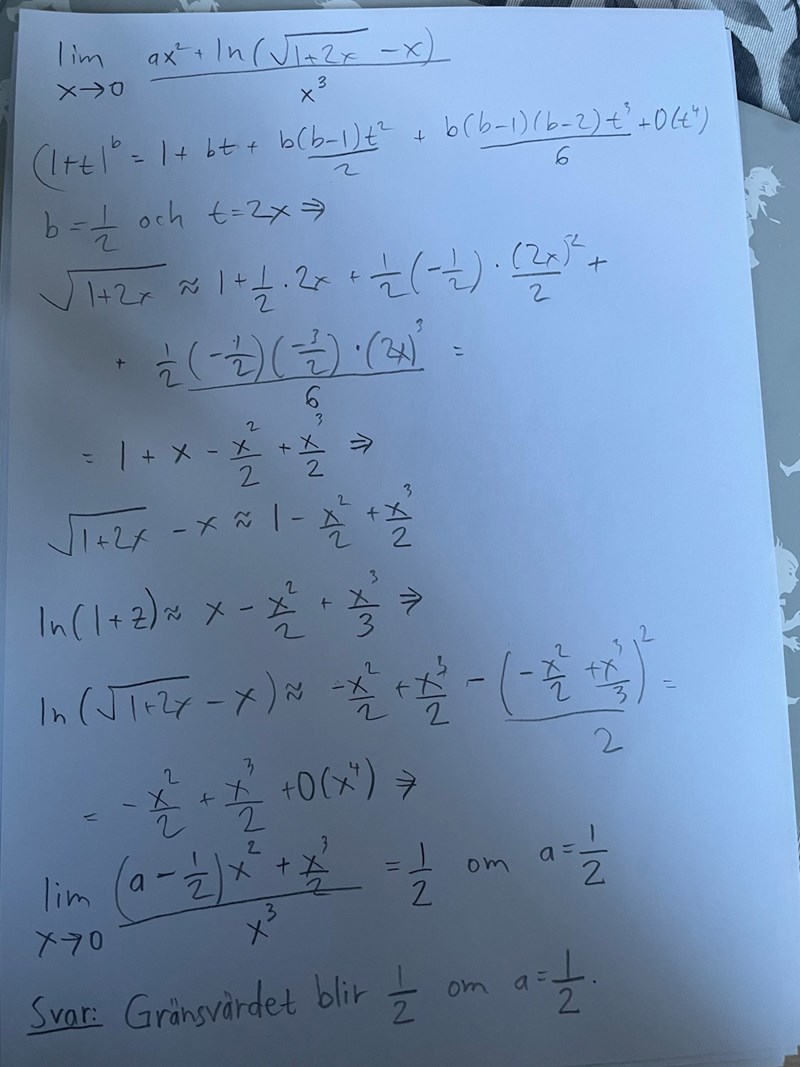 lim x→0 (ax² + ln(√(1+2x) - x)) / x³
(1+t)^b = 1 + bt + b(b-1)t²/2 + b(b-1)(b-2)t³/6 + O(t⁴)
b = 1/2 och t = 2x ⇒
√(1+2x) ≈ 1 + 1/2 · 2x + 1/2(-1/2) · (2x)²/2 +
+ 1/2(-1/2)(-3/2) · (2x)³/6 =
= 1 + x - x²/2 + x³/2 ⇒
√(1+2x) - x ≈ 1 - x²/2 + x³/2
ln(1+z) ≈ x - x²/2 + x³/3 ⇒
ln(√(1+2x) - x) ≈ -x²/2 + x³/2 - (-x²/2 + x³/3)²/2 =
= -x²/2 + x³/2 + O(x⁴) ⇒
lim x→0 ((a - 1/2)x² + x³/2) / x³ = 1/2 om a = 1/2
Svar: Gränsvärdet blir 1/2 om a = 1/2.